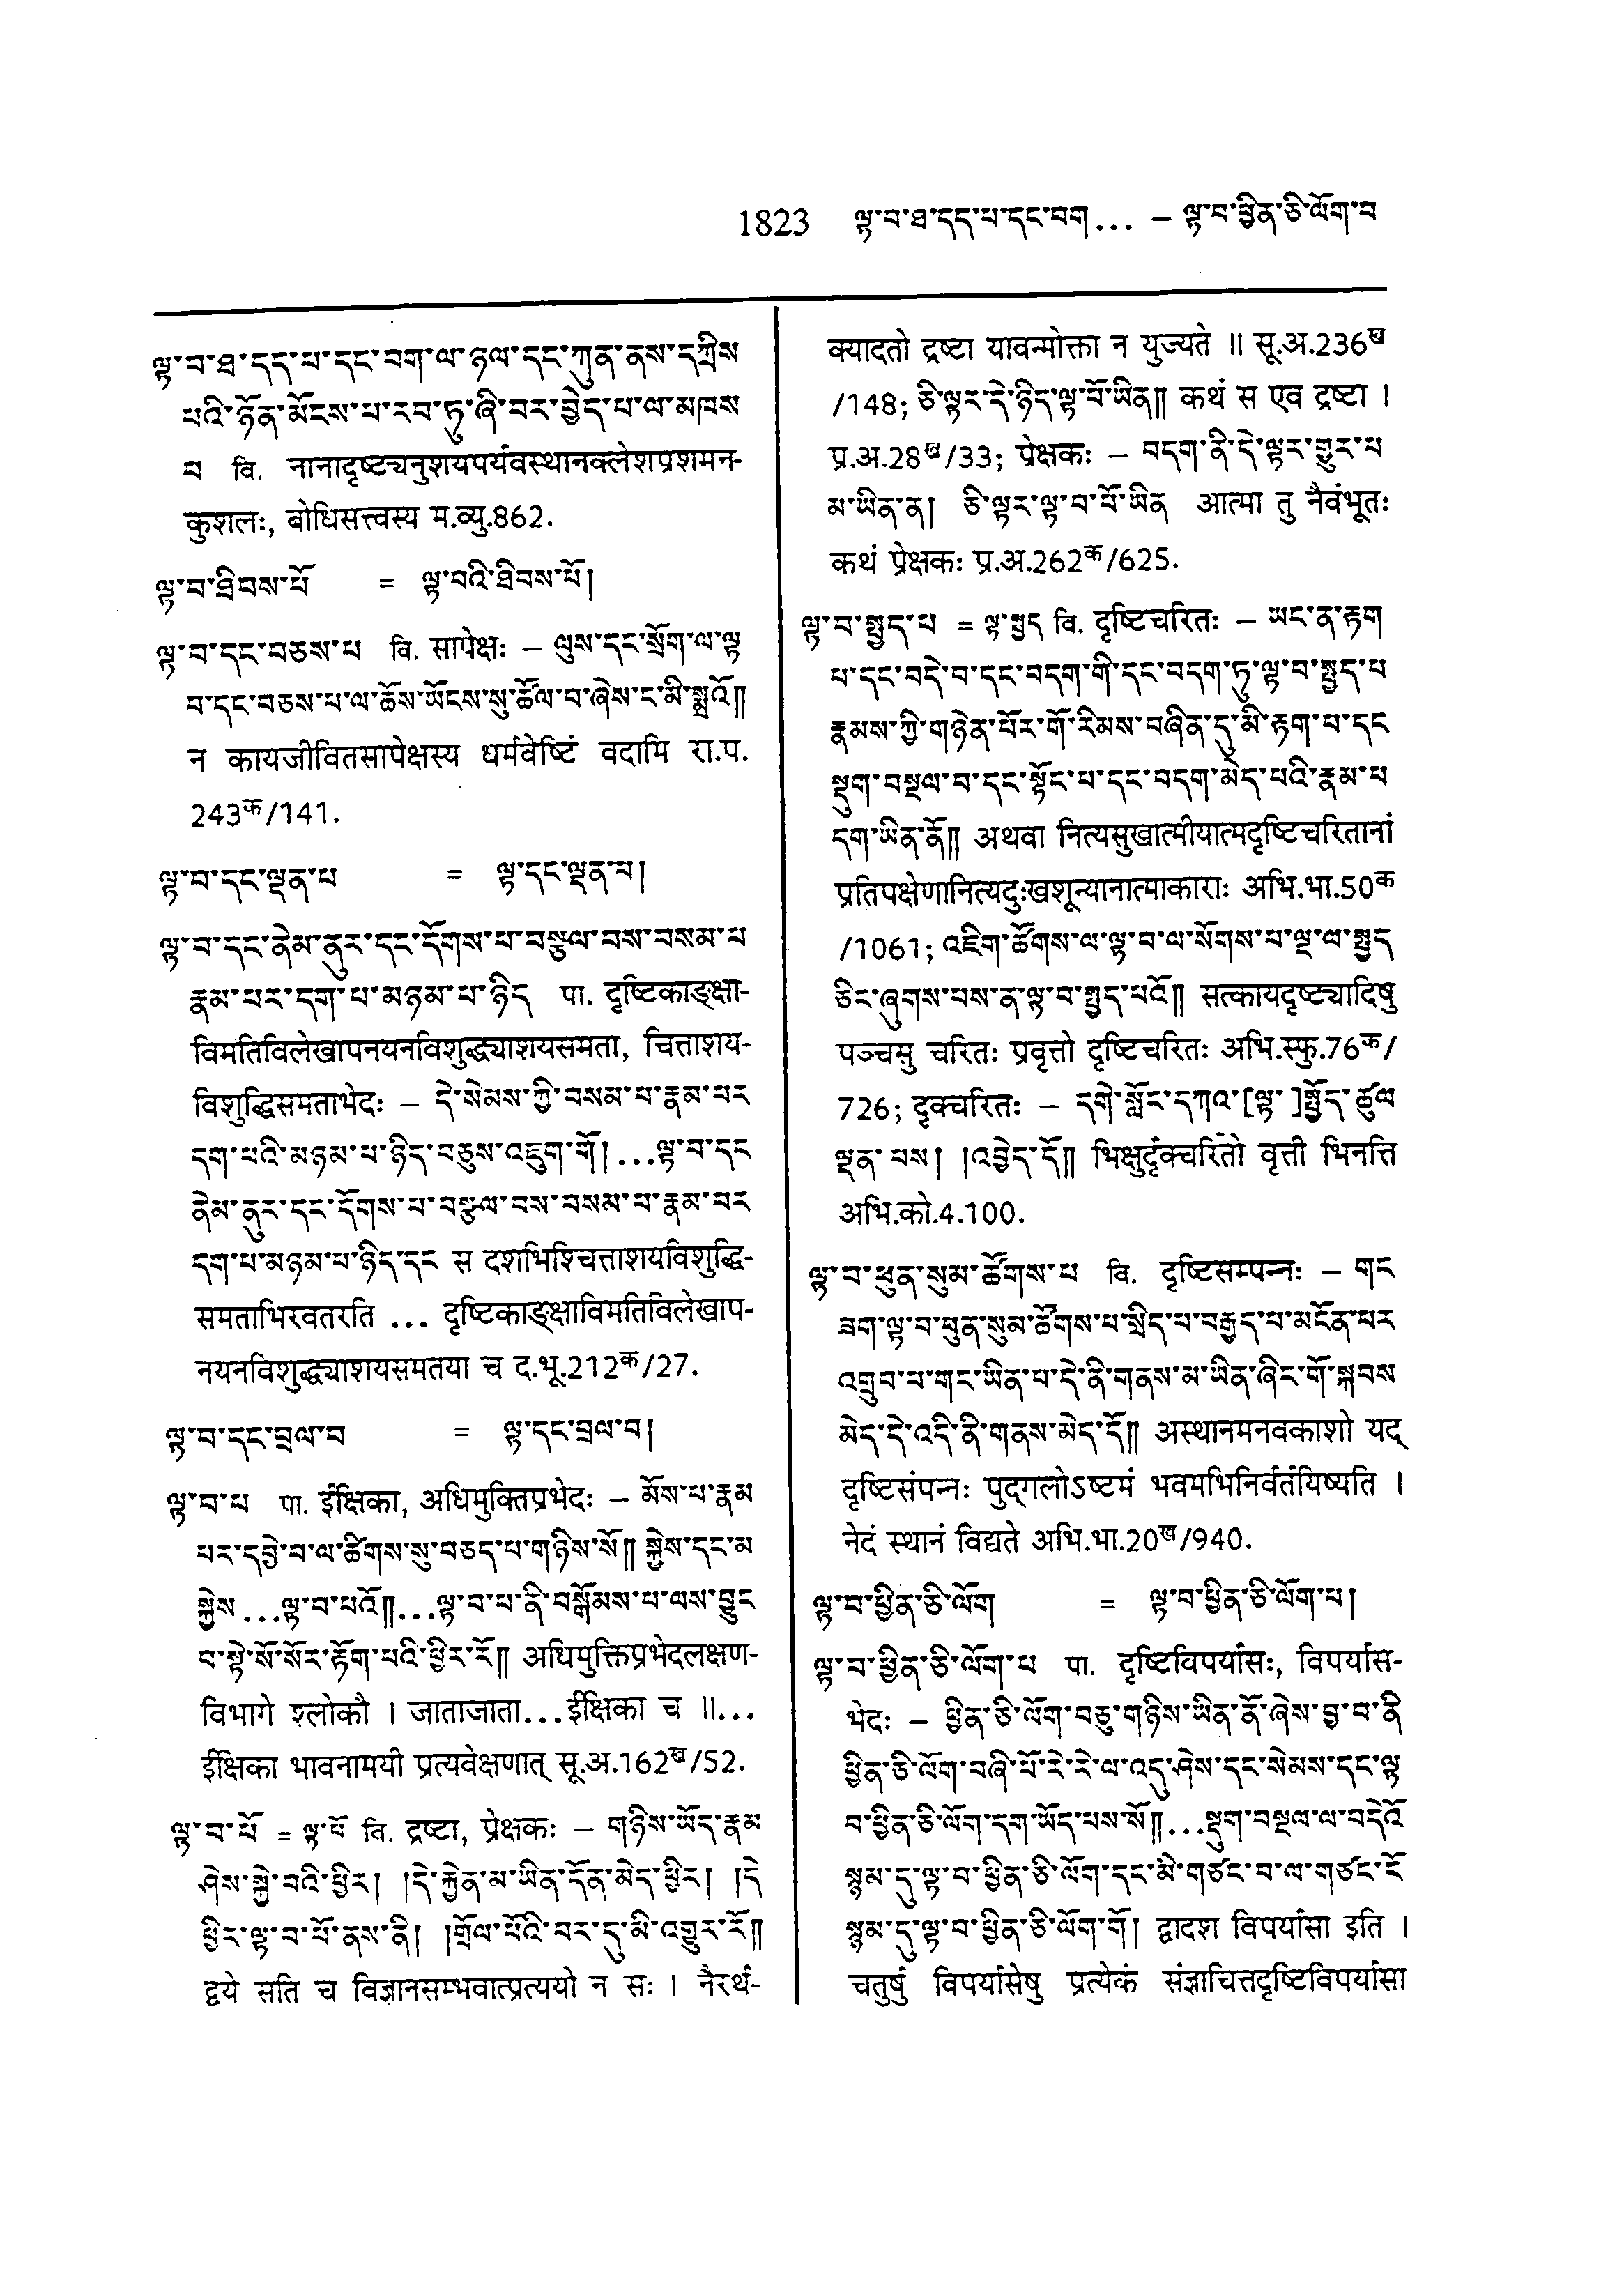 1823 ལྟ་བ་ཐ་དད་པ་དང་བག... – ལྟ་བ་ཕྱིན་ཅི་ལོག་པ
ལྟ་བ་ཐ་དད་པ་དང་བག་ལ་ཉལ་དང་ཀུན་ནས་དཀྲིས
པའི་ཉོན་མོངས་པ་རབ་ཏུ་ཞི་བར་བྱེད་པ་ལ་མཁས
པ वि. नानादृष्ट्यनुशयपर्यवस्थानक्लेशप्रशमन-
कुशलः, बोधिसत्त्वस्य म.व्यु.862.
ལྟ་བ་ཐིབས་པོ = ལྟ་བའི་ཐིབས་པོ།
ལྟ་བ་དང་བཅས་པ वि. सापेक्षः – ལུས་དང་སྲོག་ལ་ལྟ
བ་དང་བཅས་པ་ལ་ཆོས་ཡོངས་སུ་ཚོལ་བ་ཞེས་ང་མི་སྨྲའོ༎
न कायजीवितसापेक्षस्य धर्मवेष्टिं वदामि रा.प.
243क/141.
ལྟ་བ་དང་ལྡན་པ = ལྟ་དང་ལྡན་པ།
ལྟ་བ་དང་ནེམ་ནུར་དང་དོགས་པ་བསྩལ་བས་བསམ་པ
རྣམ་པར་དག་པ་མཉམ་པ་ཉིད पा. दृष्टिकाङ्क्षा-
विमतिविलेखापनयनविशुद्ध्याशयसमता, चित्ताशय-
विशुद्धिसमताभेदः – དེ་སེམས་ཀྱི་བསམ་པ་རྣམ་པར
དག་པའི་མཉམ་པ་ཉིད་བཅུས་འཇུག་གོ།...ལྟ་བ་དང
ནེམ་ནུར་དང་དོགས་པ་བསྩལ་བས་བསམ་པ་རྣམ་པར
དག་པ་མཉམ་པ་ཉིད་དང स दशभिश्चित्ताशयविशुद्धि-
समताभिरवतरति ... दृष्टिकाङ्क्षाविमतिविलेखाप-
नयनविशुद्ध्याशयसमतया च द.भू.212क/27.
ལྟ་བ་དང་བྲལ་བ = ལྟ་དང་བྲལ་བ།
ལྟ་བ་པ पा. ईक्षिका, अधिमुक्तिप्रभेदः – མོས་པ་རྣམ
པར་དབྱེ་བ་ལ་ཚིགས་སུ་བཅད་པ་གཉིས་སོ༎ སྐྱེས་དང་མ
སྐྱེས...ལྟ་བ་པའོ༎...ལྟ་བ་པ་ནི་བསྒོམས་པ་ལས་བྱུང
བ་སྟེ་སོ་སོར་རྟོག་པའི་ཕྱིར་རོ༎ अधिमुक्तिप्रभेदलक्षण-
विभागे श्लोकौ । जाताजाता...ईक्षिका च ॥...
ईक्षिका भावनामयी प्रत्यवेक्षणात् सू.अ.162ख/52.
ལྟ་བ་པོ = ལྟ་པོ वि. द्रष्टा, प्रेक्षकः – གཉིས་ཡོད་རྣམ
ཤེས་སྐྱེ་བའི་ཕྱིར། །དེ་རྐྱེན་མ་ཡིན་དོན་མེད་ཕྱིར། །དེ
ཕྱིར་ལྟ་བ་པོ་ནས་ནི། །གྲོལ་པོའི་བར་དུ་མི་འགྱུར་རོ༎
द्वये सति च विज्ञानसम्भवात्प्रत्ययो न सः । नैरर्थ-
क्यादतो द्रष्टा यावन्मोक्ता न युज्यते ॥ सू.अ.236ख
/148; ཅི་ལྟར་དེ་ཉིད་ལྟ་པོ་ཡིན༎ कथं स एव द्रष्टा ।
प्र.अ.28ख/33; प्रेक्षकः – བདག་ནི་དེ་ལྟར་གྱུར་པ
མ་ཡིན་ན། ཅི་ལྟར་ལྟ་བ་པོ་ཡིན आत्मा तु नैवंभूतः
कथं प्रेक्षकः प्र.अ.262क/625.
ལྟ་བ་སྤྱད་པ = ལྟ་སྤྱད वि. दृष्टिचरितः – ཡང་ན་རྟག
པ་དང་བདེ་བ་དང་བདག་གི་དང་བདག་ཏུ་ལྟ་བ་སྤྱད་པ
རྣམས་ཀྱི་གཉེན་པོར་གོ་རིམས་བཞིན་དུ་མི་རྟག་པ་དང
སྡུག་བསྔལ་བ་དང་སྟོང་པ་དང་བདག་མེད་པའི་རྣམ་པ
དག་ཡིན་ནོ༎ अथवा नित्यसुखात्मीयात्मदृष्टिचरितानां
प्रतिपक्षेणानित्यदुःखशून्यानात्माकाराः अभि.भा.50क
/1061; འཇིག་ཚོགས་ལ་ལྟ་བ་ལ་སོགས་པ་ལྔ་ལ་སྤྱད
ཅིང་ཞུགས་པས་ན་ལྟ་བ་སྤྱད་པའོ༎ सत्कायदृष्ट्यादिषु
पञ्चसु चरितः प्रवृत्तो दृष्टिचरितः अभि.स्फु.76क/
726; दृक्चरितः – དགེ་སློང་དཀའ་[ལྟ་]སྤྱོད་ཚུལ
ལྡན་པས། །འབྱེད་དོ༎ भिक्षुर्दृक्चरितो वृत्ती भिनत्ति
अभि.को.4.100.
ལྟ་བ་ཕུན་སུམ་ཚོགས་པ वि. दृष्टिसम्पन्नः – གང
ཟག་ལྟ་བ་ཕུན་སུམ་ཚོགས་པ་སྲིད་པ་བརྒྱད་པ་མངོན་པར
འགྲུབ་པ་གང་ཡིན་པ་དེ་ནི་གནས་མ་ཡིན་ཞིང་གོ་སྐབས
མེད་དེ་འདི་ནི་གནས་མེད་དོ༎ अस्थानमनवकाशो यद्
दृष्टिसंपन्नः पुद्गलोऽष्टमं भवमभिनिर्वर्तयिष्यति ।
नेदं स्थानं विद्यते अभि.भा.20ख/940.
ལྟ་བ་ཕྱིན་ཅི་ལོག = ལྟ་བ་ཕྱིན་ཅི་ལོག་པ།
ལྟ་བ་ཕྱིན་ཅི་ལོག་པ पा. दृष्टिविपर्यासः, विपर्यास-
भेदः – ཕྱིན་ཅི་ལོག་བཅུ་གཉིས་ཡིན་ནོ་ཞེས་བྱ་བ་ནི
ཕྱིན་ཅི་ལོག་བཞི་པོ་རེ་རེ་ལ་འདུ་ཤེས་དང་སེམས་དང་ལྟ
བ་ཕྱིན་ཅི་ལོག་དག་ཡོད་པས་སོ༎...སྡུག་བསྔལ་ལ་བདེའོ
སྙམ་དུ་ལྟ་བ་ཕྱིན་ཅི་ལོག་དང་མི་གཙང་བ་ལ་གཙང་ངོ
སྙམ་དུ་ལྟ་བ་ཕྱིན་ཅི་ལོག་གོ། द्वादश विपर्यासा इति ।
चतुर्षु विपर्यासेषु प्रत्येकं संज्ञाचित्तदृष्टिविपर्यासा